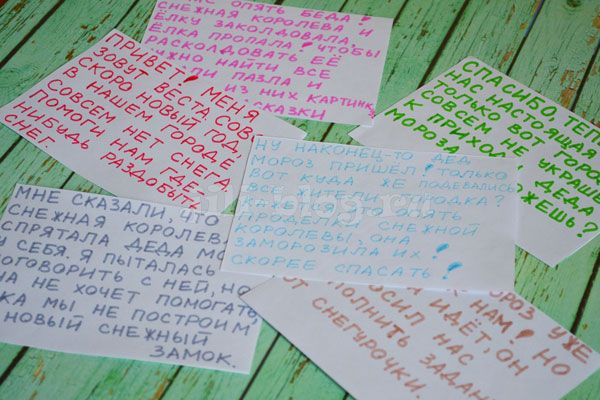 ОПЯТЬ БЕДА!
СНЕЖНАЯ КОРОЛЕВА И
ЁЛКУ ЗАКОЛДОВАЛА,
ЁЛКА ПРОПАЛА! ЧТОБЫ
РАСКОЛДОВАТЬ ЕЁ
НУЖНО НАЙТИ ВСЕ
ПАЗЛА И
ИЗ НИХ КАРТИНК
СКАЗКИ
ПРИВЕТ! МЕНЯ
ЗОВУТ ВЕСТА СОВ
СКОРО НОВЫЙ ГОД,
В НАШЕМ ГОРОДЕ
СОВСЕМ НЕТ СНЕГА
ПОМОГИ НАМ ГДЕ
НИБУДЬ РАЗДОБЫТЬ
СНЕГ.
СПАСИБО, ТЕП
НАС НАСТОЯЩА
ТОЛЬКО ВОТ ГОРО
СОВСЕМ НЕ УКРАШЕ
К ПРИХОД ДЕДА
МОРОЗА ОЖЕШЬ?
НУ НАКОНЕЦ-ТО ДЕД
МОРОЗ ПРИШЁЛ! ТОЛЬКО
ВОТ КУДА ЖЕ ПОДЕВАЛИСЬ
ВСЕ ЖИТЕЛИ ГОРОДКА?
ОПЯТЬ
ПРОДЕЛКИ СНЕЖНОЙ
КОРОЛЕВЫ, ОНА
ЗАМОРОЗИЛА ИХ!
СКОРЕЕ СПАСАТЬ!
МНЕ СКАЗАЛИ, ЧТО
СНЕЖНАЯ КОРОЛЕВ
СПРЯТАЛА ДЕДА МО
У СЕБЯ. Я ПЫТАЛАСЬ
ПОГОВОРИТЬ С НЕЙ, НО
ОНА НЕ ХОЧЕТ ПОМОГАТЬ
ПОКА МЫ НЕ ПОСТРОИМ
НОВЫЙ СНЕЖНЫЙ
ЗАМОК.
МОРОЗ УЖЕ
К НАМ! НО
ИДЁТ, ОН
ПОПРОСИЛ НАС
ВЫПОЛНИТЬ ЗАДАН
ОТ СНЕГУРОЧКИ.